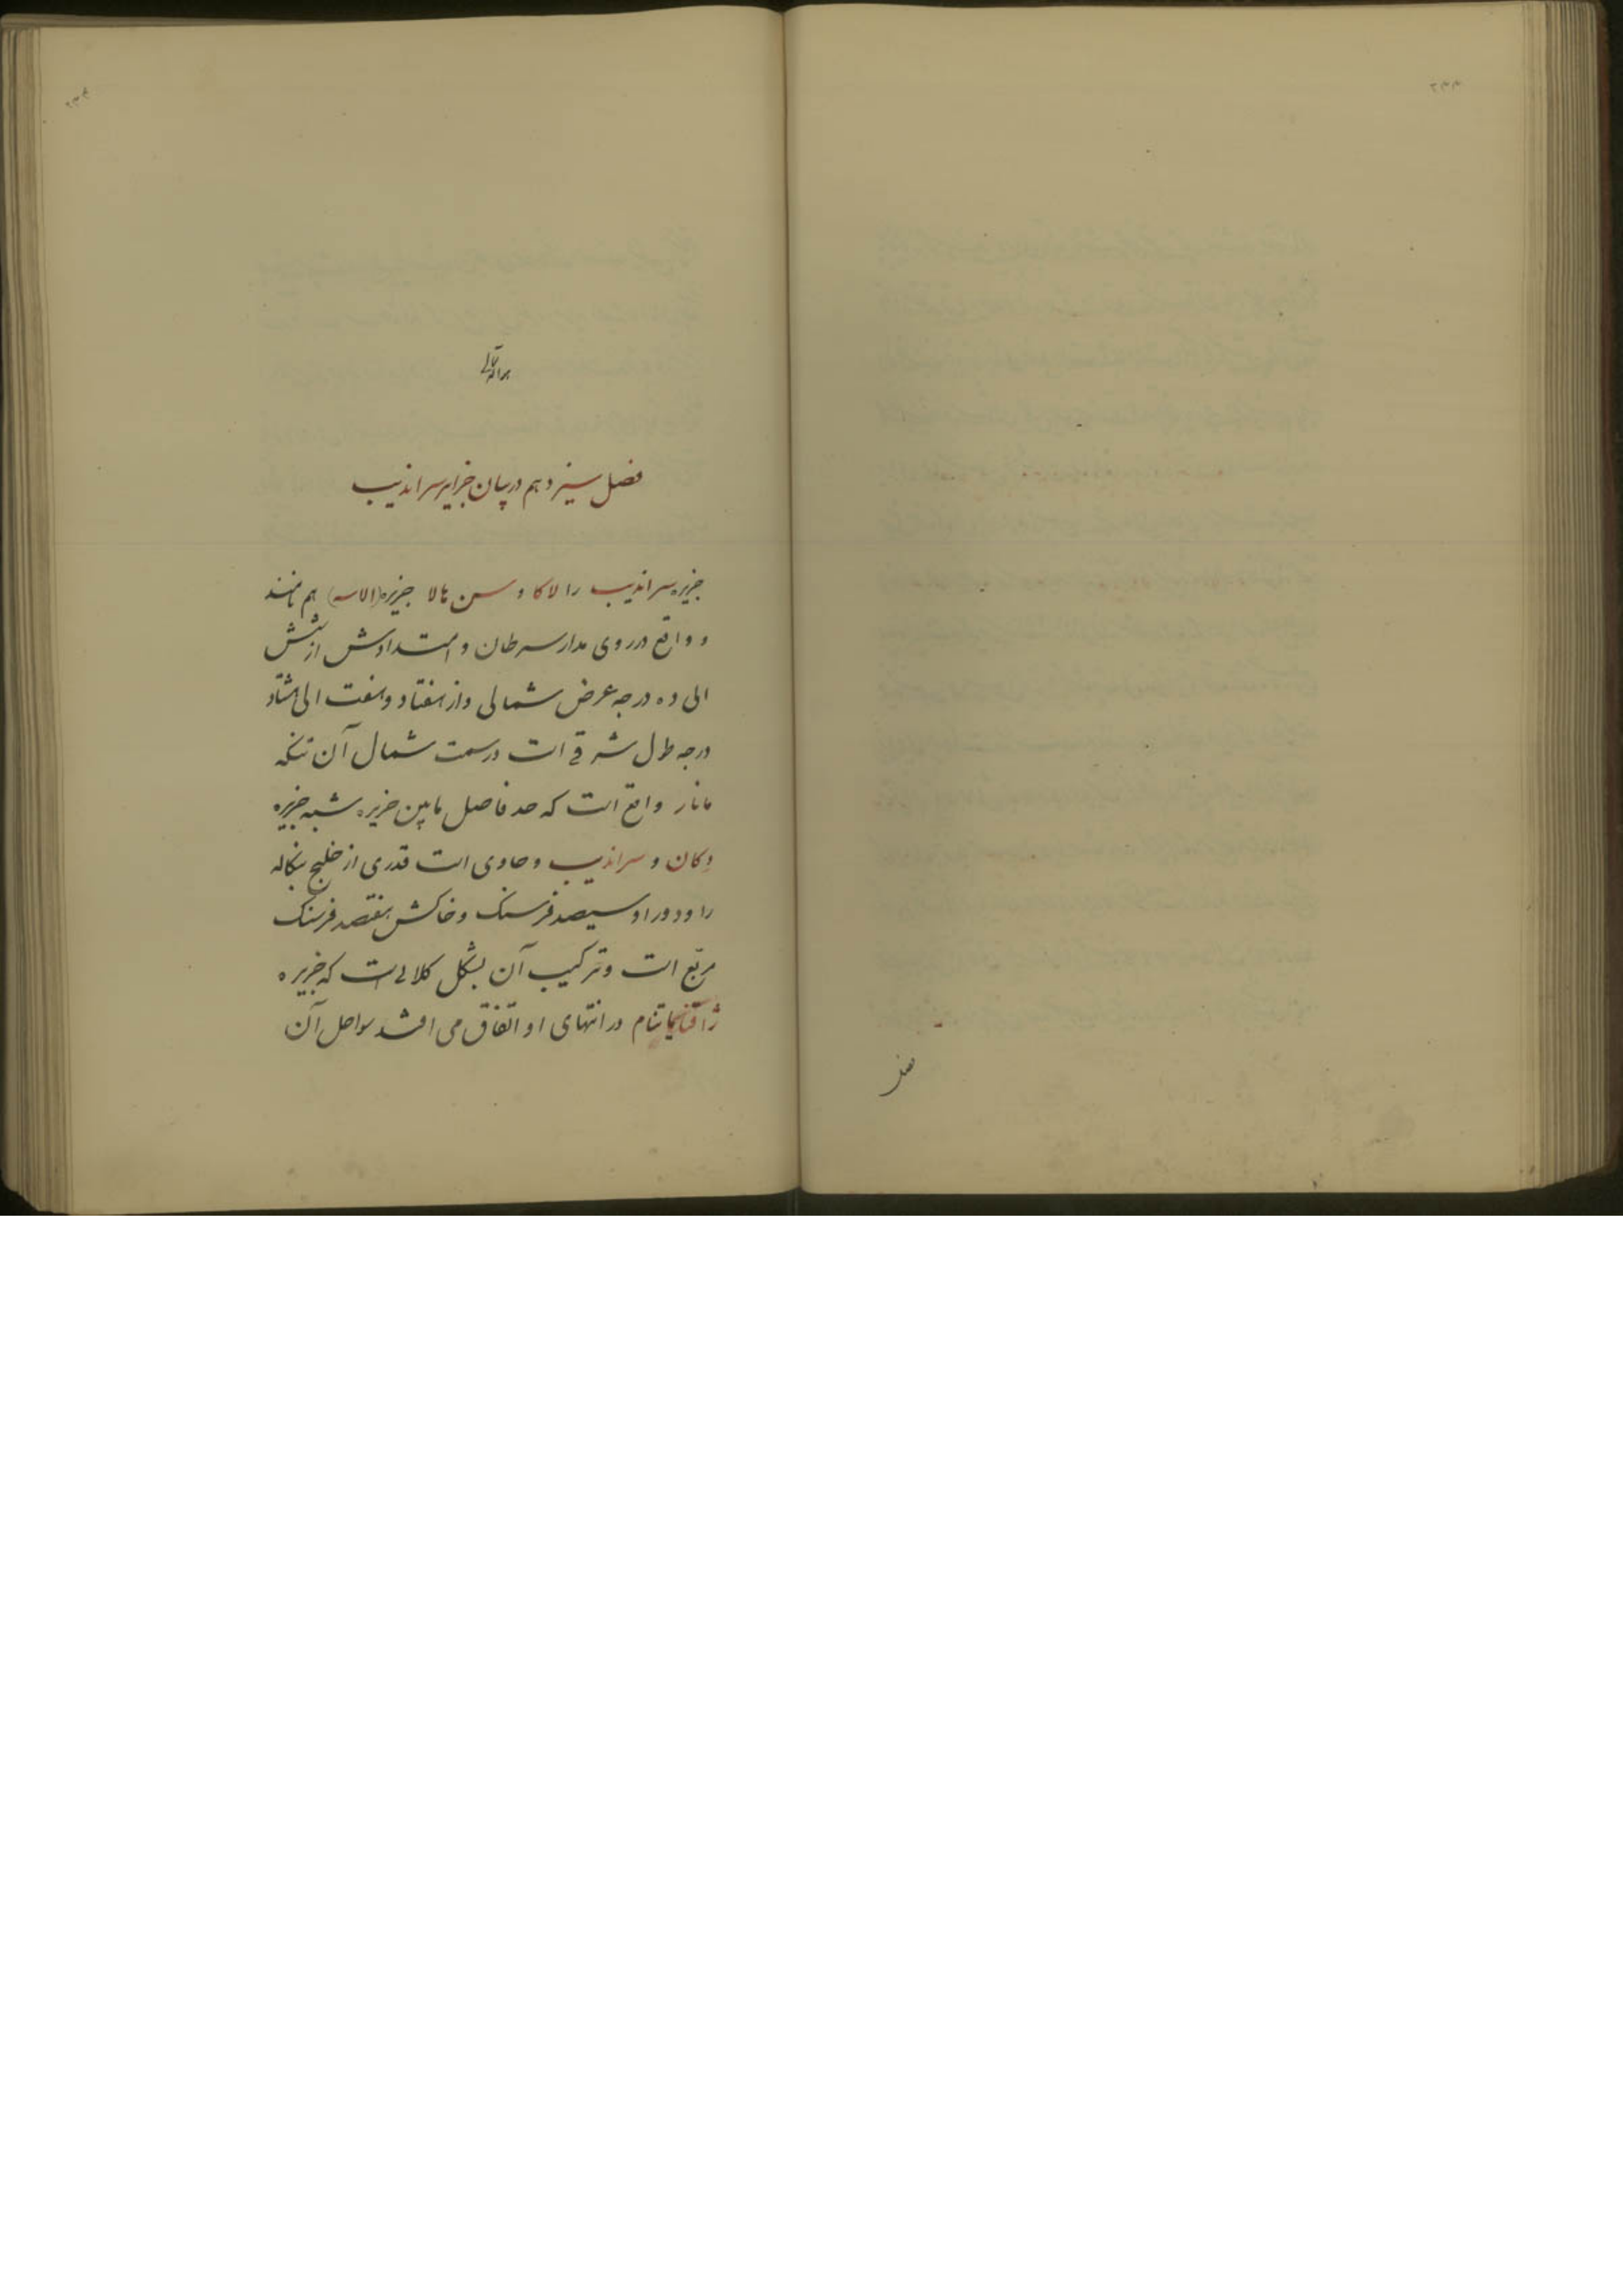 فصل
هو الله تعالی
فصل سیزدهم در بیان جزایر سراندیب
جزیره سراندیب را لاکا و سن هالا جزیره (الاسه) هم نامند
و واقع در روی مدار سرطان و امتدادش از شش
الی ده درجه عرض شمالی و از هفتاد و هفت الی هشتاد
درجه طول شرقی است در سمت شمال آن تنکه
مانار واقع است که حد فاصل مابین جزیره شبه جزیره
دکان و سراندیب و حاوی است قدری از خلیج بنکاله
را و دور او سیصد فرسنک و خاکش هفتصد فرسنک
مربع است و ترکیب آن بشکل کلابی است که جزیره
در انتهای او اتفاق می افتد سواحل آن